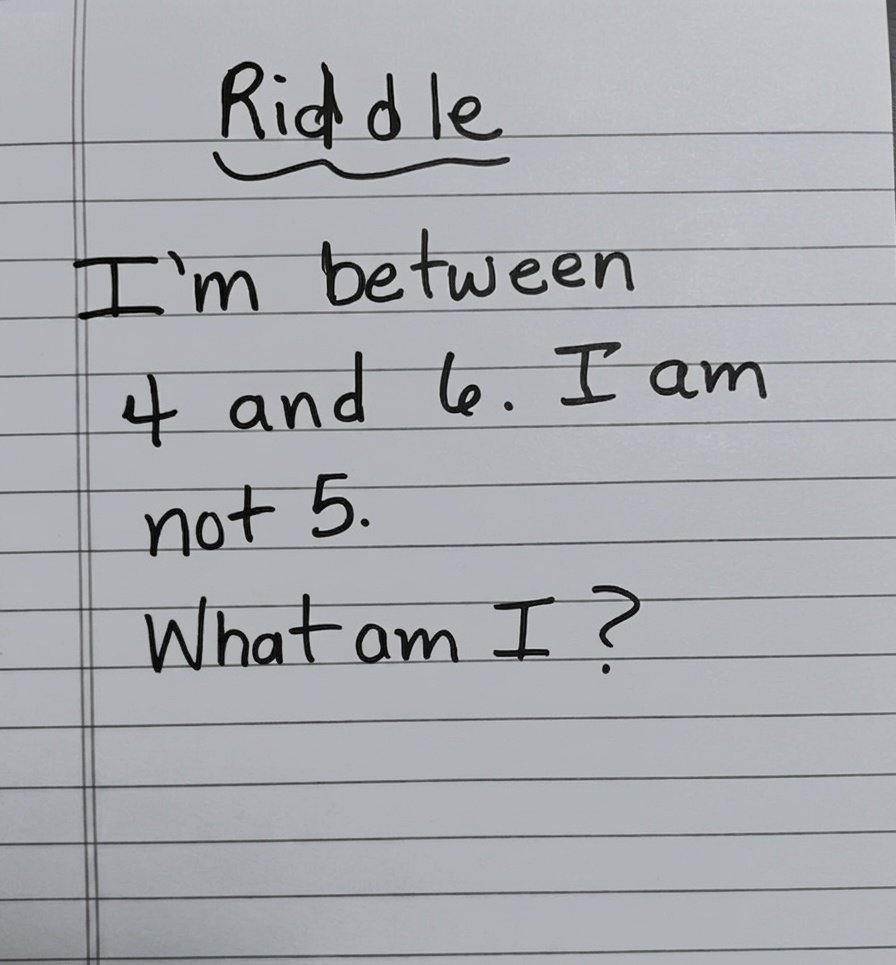 Riddle
I'm between
4 and 6. I am
not 5.
What am I?